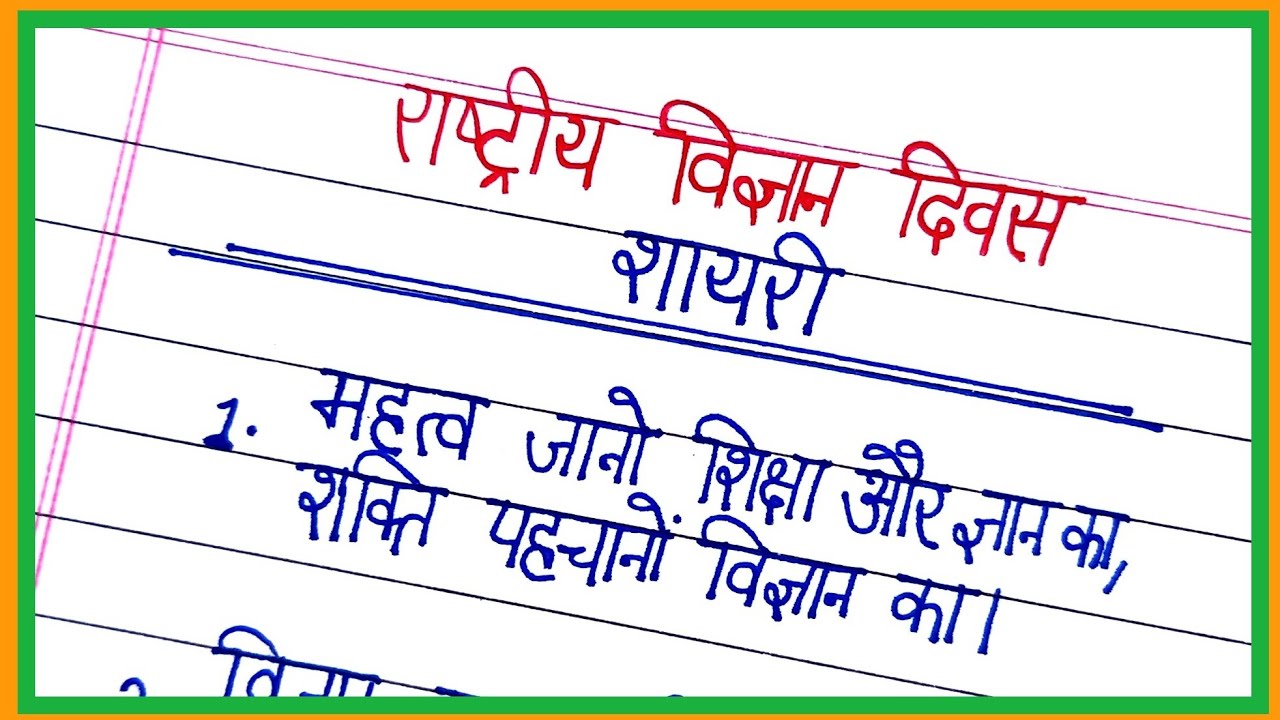 राष्ट्रीय विज्ञान दिवस
शायरी
1. महत्व जानो शिक्षा और ज्ञान का,
शक्ति पहचानों विज्ञान का।